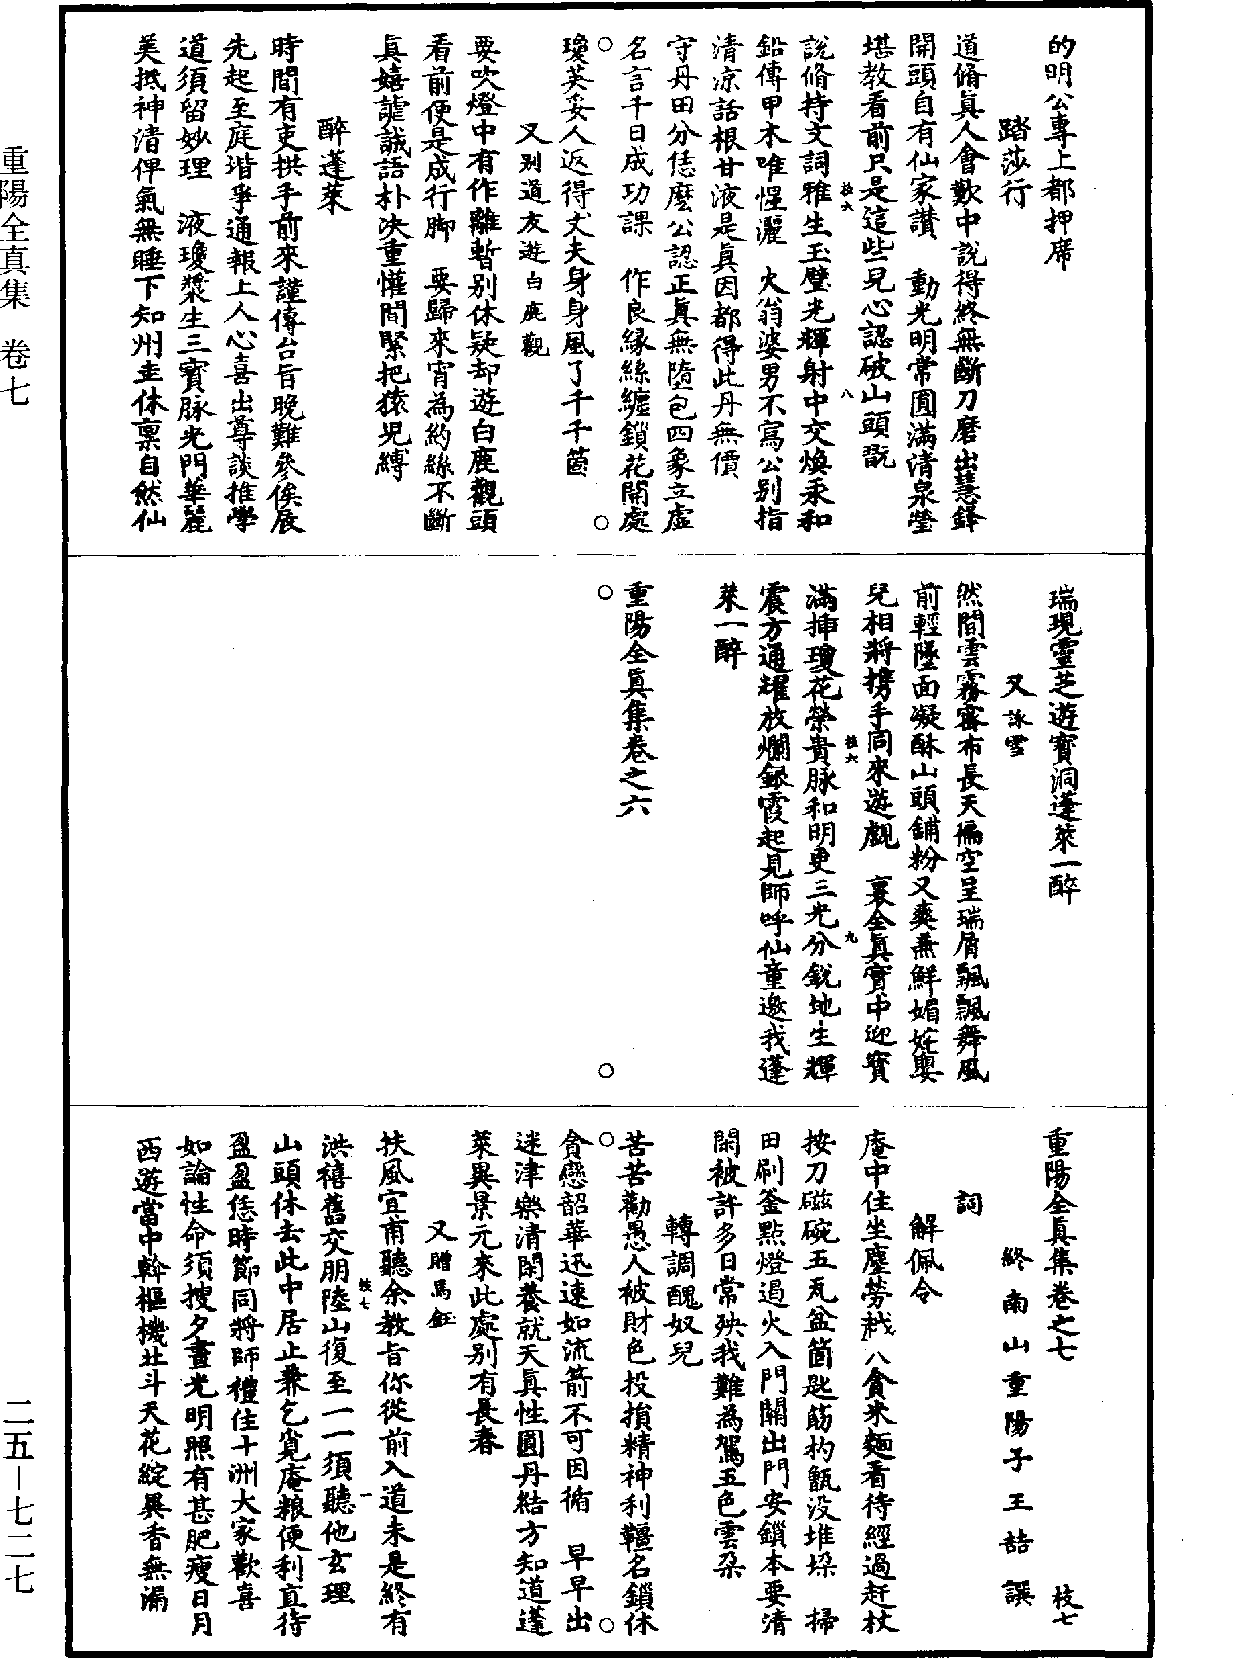 的明公專上都押席
踏莎行
道脩眞人會歎中說得終無斷刀磨出慧鋒
開頭自有仙家讃　動光明常圓滿清泉瑩
堪教看前只是這些兒心認破山頭翫
說脩持文詞雅生玉壁光輝射中交煥汞和
鉛傳甲木唯惺灑　火翁婆男不寫公別指
清凉話根甘液是眞因都得此丹無價
守丹田分恁麽公認正眞無隳包四象立虛
名言千日成功課　作良緣絲纏鎖花開處
瓊英妥人返得丈夫身身風了千千箇
又别道友遊白鹿觀
要吹燈中有作離暫别休疑却遊白鹿觀頭
看前便是成行脚　要歸來宵為約絲不斷
眞嬉謔誠語朴決重懽間緊把猿兒縛
醉蓬萊
時間有吏拱手前來謹傳台旨晚難參俟辰
先起至庭堦爭通報上人心喜出尊談推學
道須留妙理　液瓊漿生三寶脉光門華麗
美抵神清俾氣無睡下知州圭休稟自然仙
枝六
八
瑞現靈芝遊寳洞蓬萊一醉
又詠雪
然間雲霧密布長天徧空呈瑞屑飄飄舞風
前輕墜面凝酥山頭鋪粉又爽兼鮮媚姹嬰
兒相將携手同來遊戲　裏全眞實中迎寳
滿挿瓊花榮貴脉和明更三光分銳地生輝
震方通耀放爛銀霞起見師呼仙童邀我蓬
萊一醉
枝六
九
重陽全眞集卷之六
重陽全眞集卷之七　枝七
終南山重陽子王嚞譔
詞
解佩令
庵中住坐塵勞衹八貪米麵看待經過赶杖
按刀磁碗五瓦盆箇匙筯杓甑没堆垜　掃
田刷釜點燈過火入門關出門安鎖本要清
閑被許多日常殃我難為駕五色雲朶
轉調醜奴兒
苦苦勸愚人被財色投損精神利韁名鎖休
貪戀韶華迅速如流箭不可因循　早早出
迷津樂清閑養就天眞性圓丹結方知道蓬
萊異景元來此處别有長春
又贈馬鈺
扶風宜甫聽余教旨你從前入道未是終有
洪禧舊交朋陸山復至一一須聽他玄理
山頭休去此中居止兼乞覓庵粮便利直待
盈盈恁時節同將師禮住十洲大家歡喜
如論性命須搜夕晝光明照有甚肥瘦日月
西遊當中斡樞機北斗天花綻異香無漏
枝七
一
重陽全真集　卷七
二五—七二七